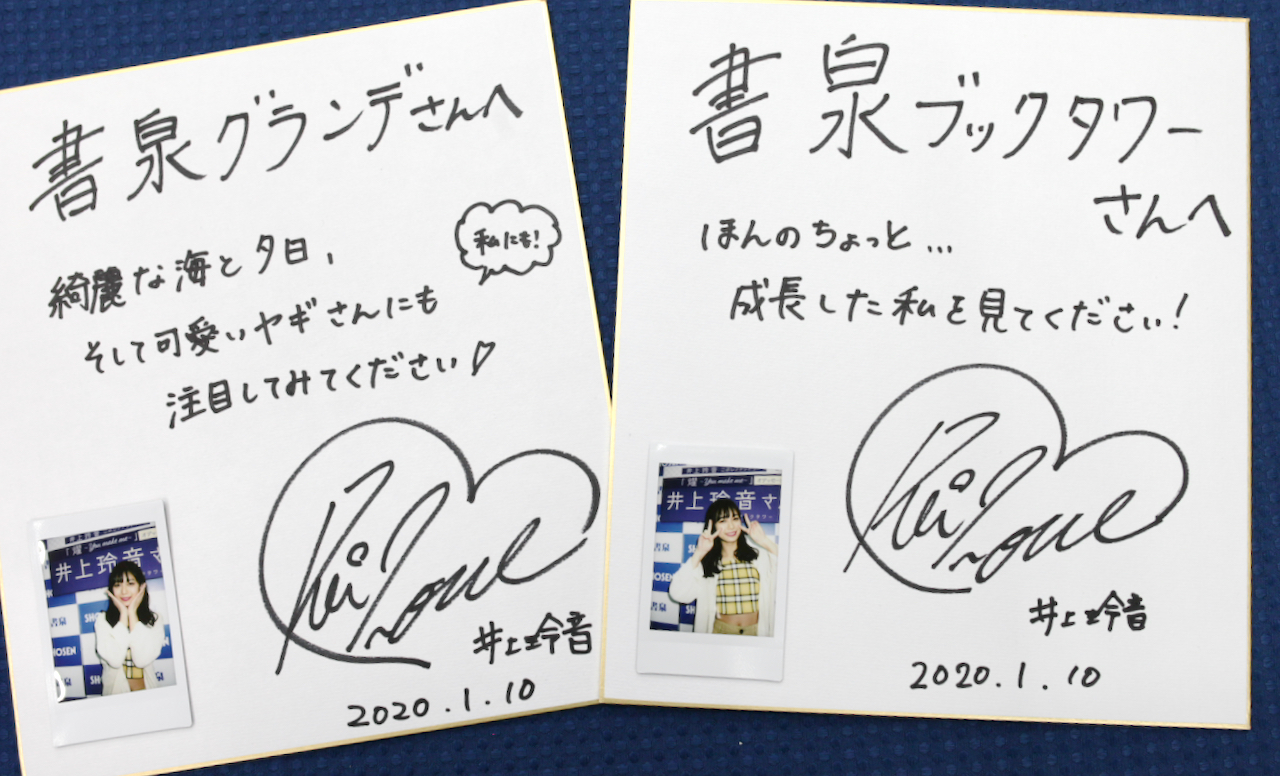 書泉グランデさんへ
綺麗な海と夕日,
私にも!
そして可愛いヤギさんにも
注目してみてください♡
Rei Inoue
井上玲音
2020.1.10
井上玲音
「燿 -You make me-」
井上玲音さ
書泉
SHOSEN
書泉ブックタワー
さんへ
ほんのちょっと...
成長した私を見てください!
Rei Inoue
井上玲音
2020.1.10
井上玲音
「燿 -You make me-」
井上玲音さ
書泉
SHOSEN